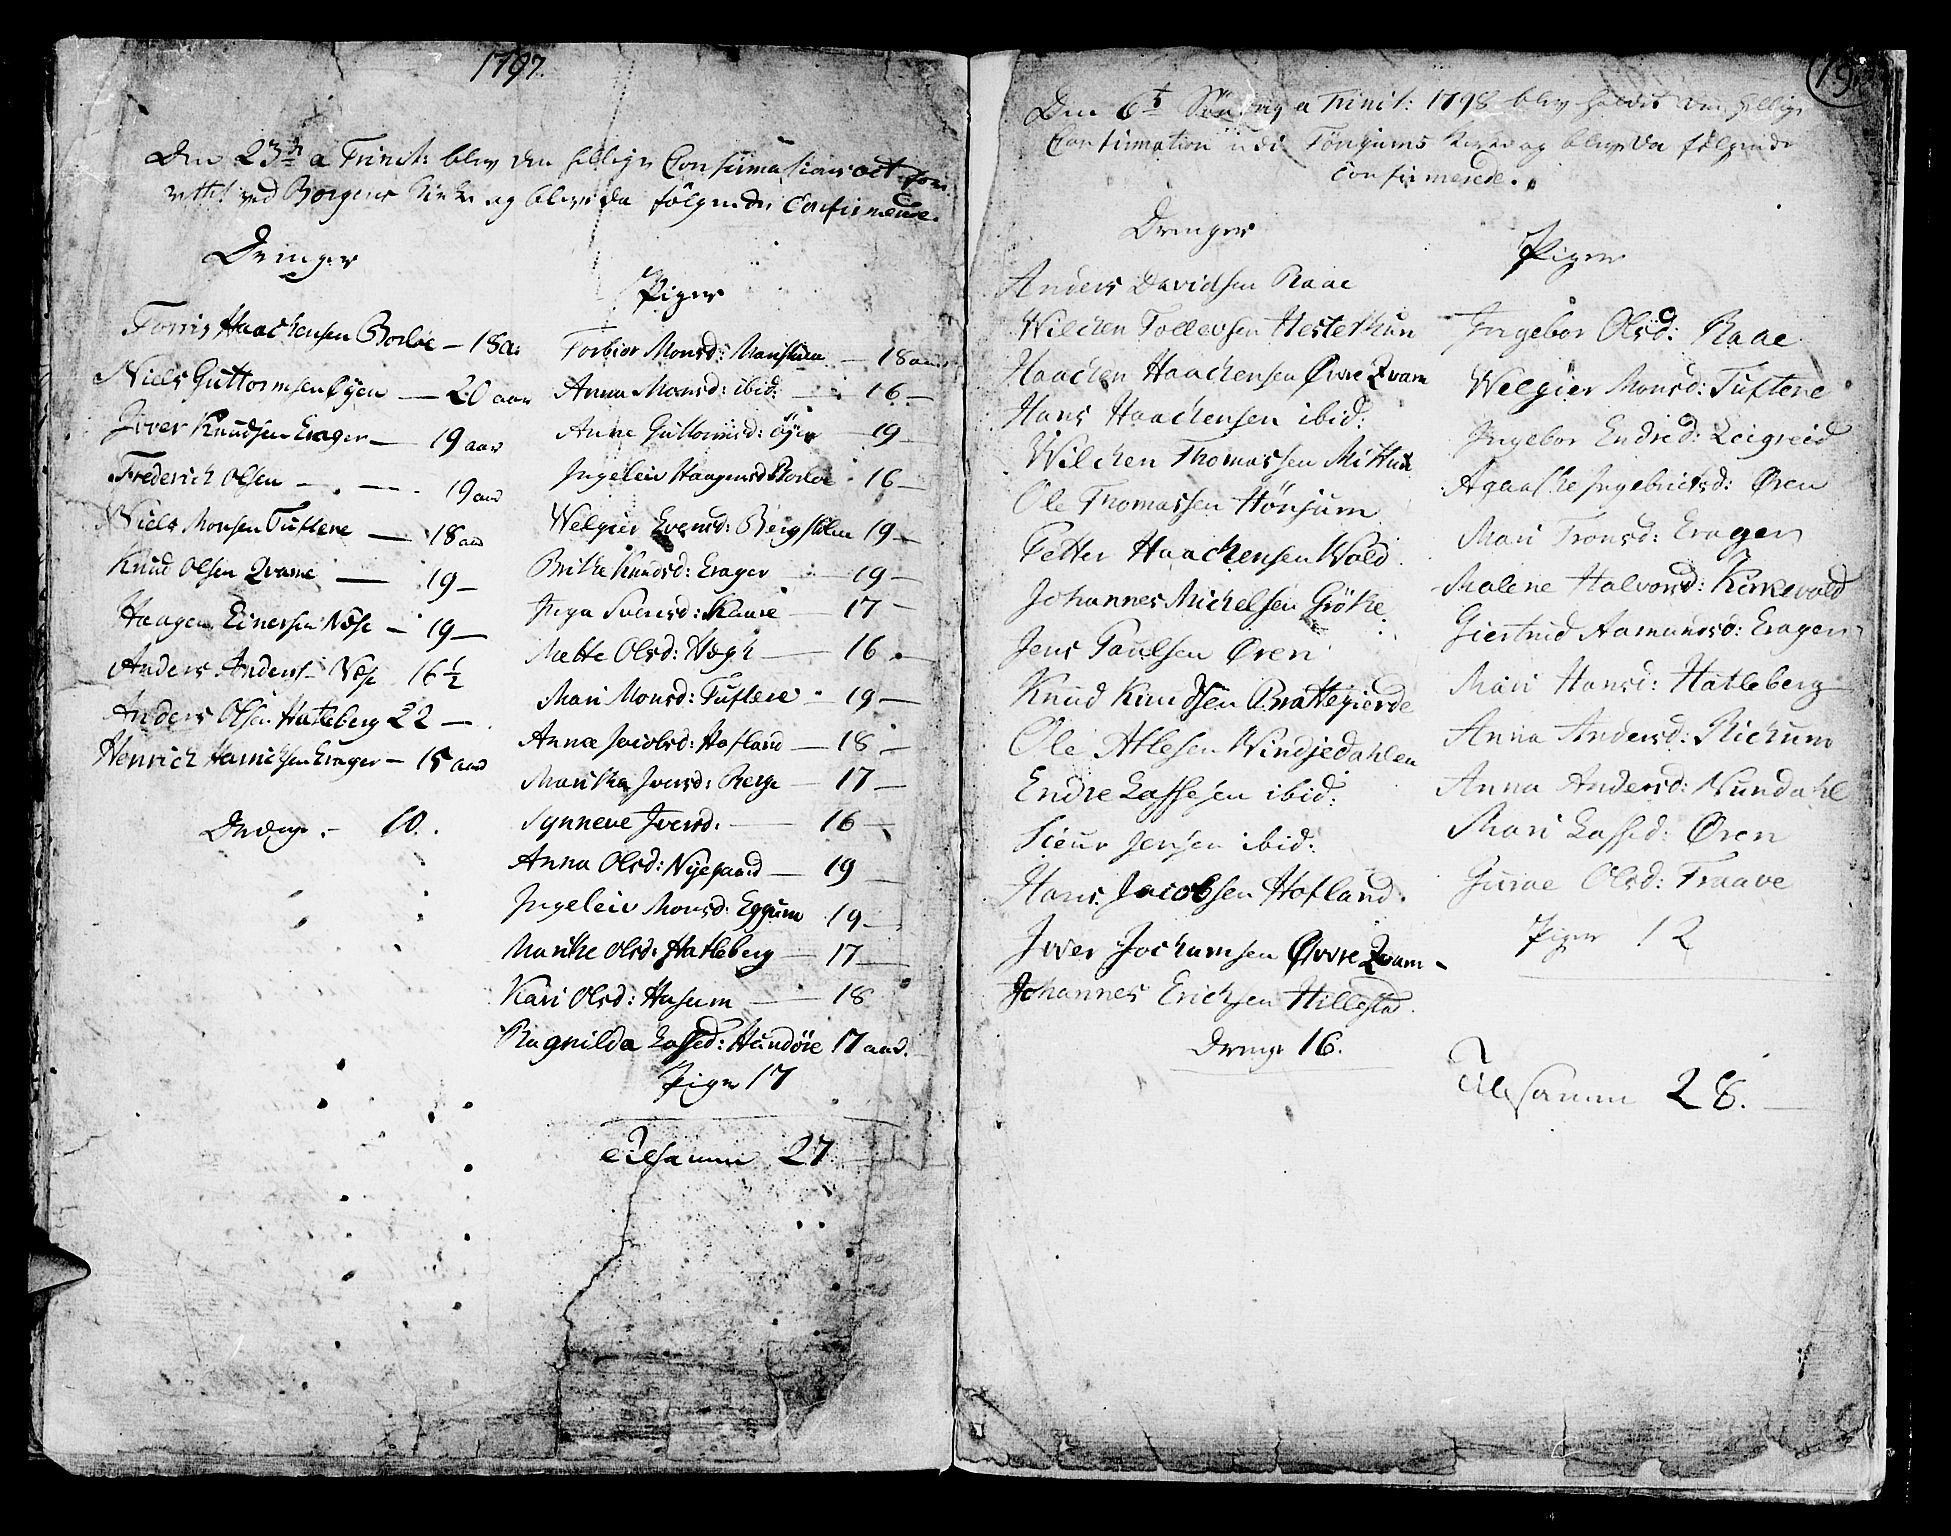 1797.
Den 23de a Trinit: blev den hellige Confirmations act for
rettet ved Borgens Kirke og bleve da følgende Confirmerede.
Drenger
Haachensen Borlœ — 18 a:
Niels Guttormsen Øyen — 20 aar
Jver Knudsen Erager — 19 aar
Frederich Olsen — . — . 19 aar
Niels Monsen Tuftene — 18 aar
Knud Olsen Qvame — 19 —
Haagen Einersen Næse — 19 —
Anders Anders: Næse 16 1/2
Anders Olsen Hatleberg 22 —
Henrich Henrichsen Erager — 15 aar
Drenge — 10.
Piger
Torbior Monsd: — 18 aar
Anna Monsd: ibid: — 16 —
Anne Guttormsd: öyen — 19 —
Jngeleiv Haagensd: Borloe — 16 —
Welgier Evensd: Bergstölen 19 —
Brithe Knudsd: Erager — 19 —
Jnga Svensd: — 17 —
Mette Olsd: Hægh — 16 —
Mari Monsd: Tuftene — 19 —
Anna Jacobsd: Hofland — 18 —
Marithe Jversd: Berge — 17 —
Synneve Jversd. — 16 —
Anna Olsd: Nyegaard — 19 —
Jngeleiv Monsd: Eggum 19 —
Marithe Olsd: Hatleberg — 17 —
Kari Olsd: Hasum — 18
Ragnilda Lassed: Hundöre 17 aar.
Piger 17
Tilsamm 27
Den 6t Söndag a Trinit: 1798 blev holdet den hellige
Confirmation udi Tönjums Kirke og bleve da følgende
Confirmerede.
Drenger
Anders Davidsen Raae
Wilchen Tollevsen Hestethun
Haachen Haachensen Øvre Qvam
Hans Haachensen ibid:
Wilchen Thomassen Mithun
Ole Thomassen Hönjum
Petter Haachensen Wold
Johannes Michelsen Gröthe
Jens Paulsen Øren
Knud Knudsen Brattegierde
Ole Atlesen Windjedahlen
Endre Lassesen ibid:
Sieur Jensen ibid:
Hans Jacobsen Hofland.
Jver Jochumsen Øvre Qvam —
Johannes Erichsen Hillestad.
Drenge 16.
Piger
Jngebor Olsd: Raae
Welgier Monsd: Tuftene
Jngebor Endred: Leigreid
Agaathe Jngebrictsd: Øren
Mari Tronsd: Eragen
Malene Halvorsd: Kirkevold
Giertrud Aamundsd: Eragen
Mari Hansd: Hatleberg
Anna Andersd: Richum
Anna Andersd: Nundahl
Mari Lassed: Øren
Guroe Olsd: Traave
Piger 12
Tilsamm 28.